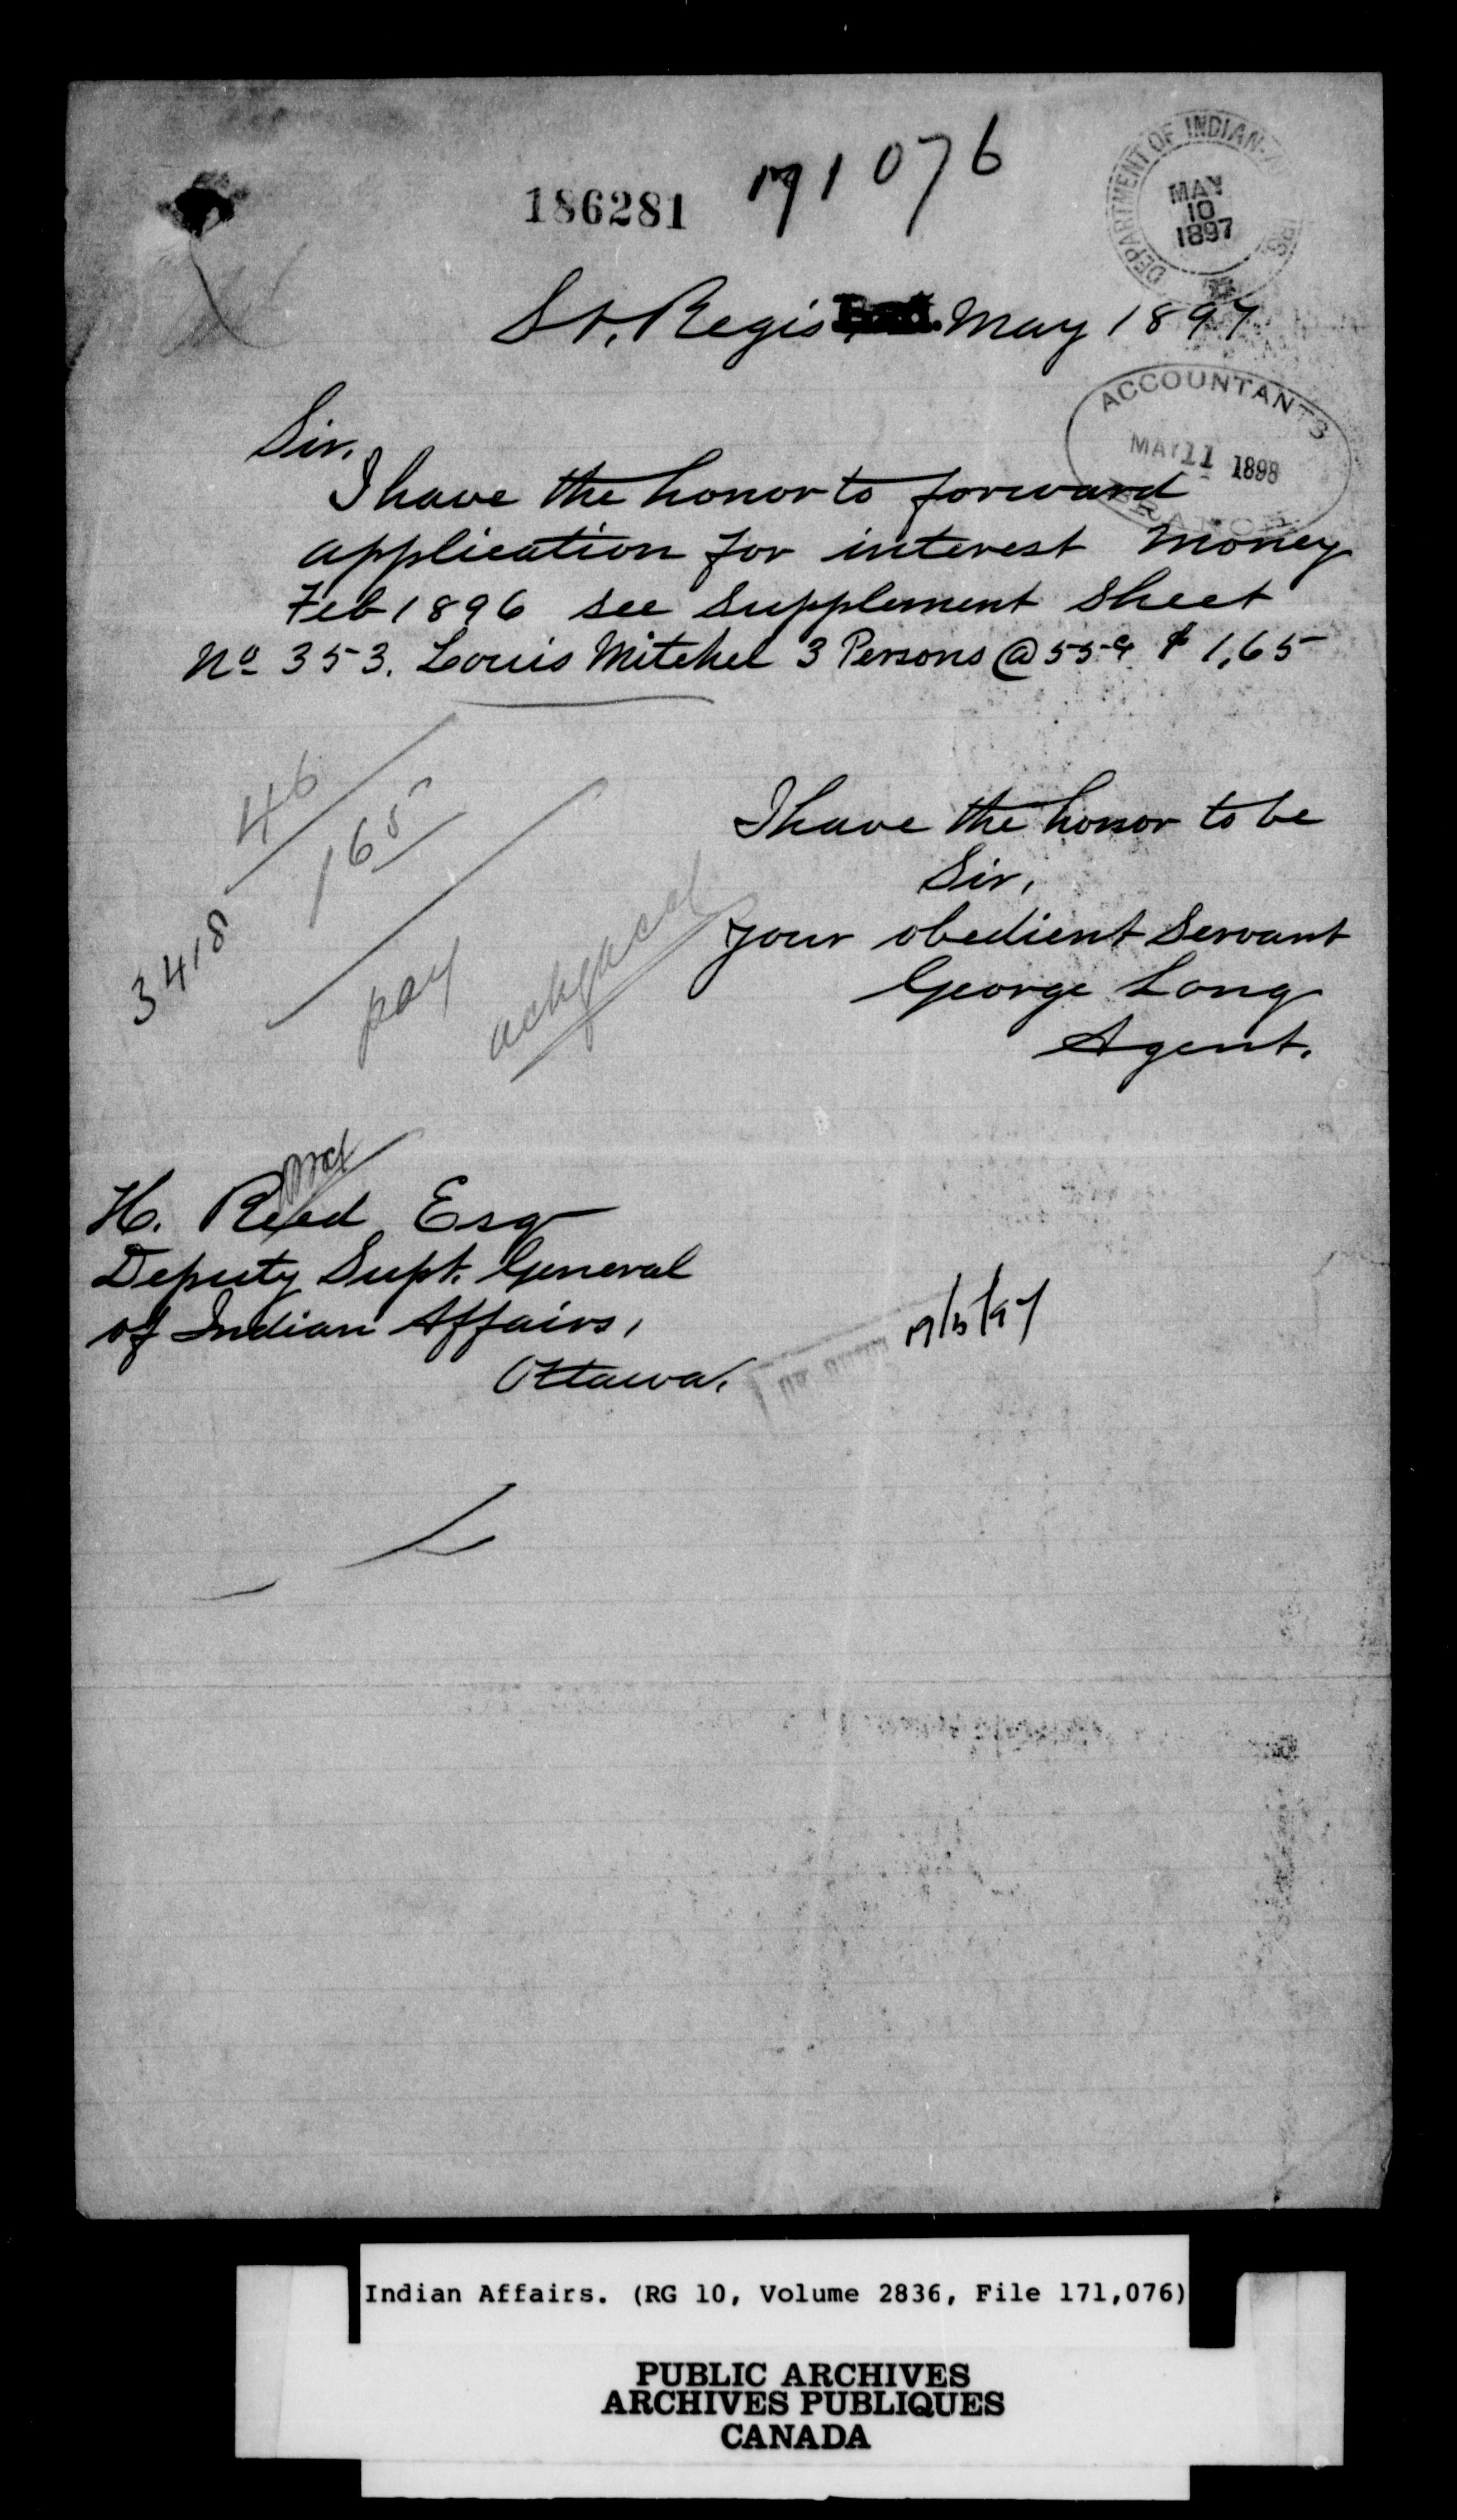 186281 171076
DEPARTMENT OF INDIAN
MAY
10
1897
St. Regis May 1897
ACCOUNTANTS
MAY 11 1898
BRANCH
Sir,
I have the honor to forward
application for interest money
Feb 1896 see Supplement Sheet
No 353. Louis Mitchel 3 Persons @ 55c $ 1,65
46
165
3418
pay
I have the honor to be
Sir,
Your obedient Servant
George Long
Agent.
H. Reed Esq
Deputy Supt. General
of Indian Affairs,
Ottawa.
Indian Affairs. (RG 10, Volume 2836, File 171,076)
PUBLIC ARCHIVES
ARCHIVES PUBLIQUES
CANADA